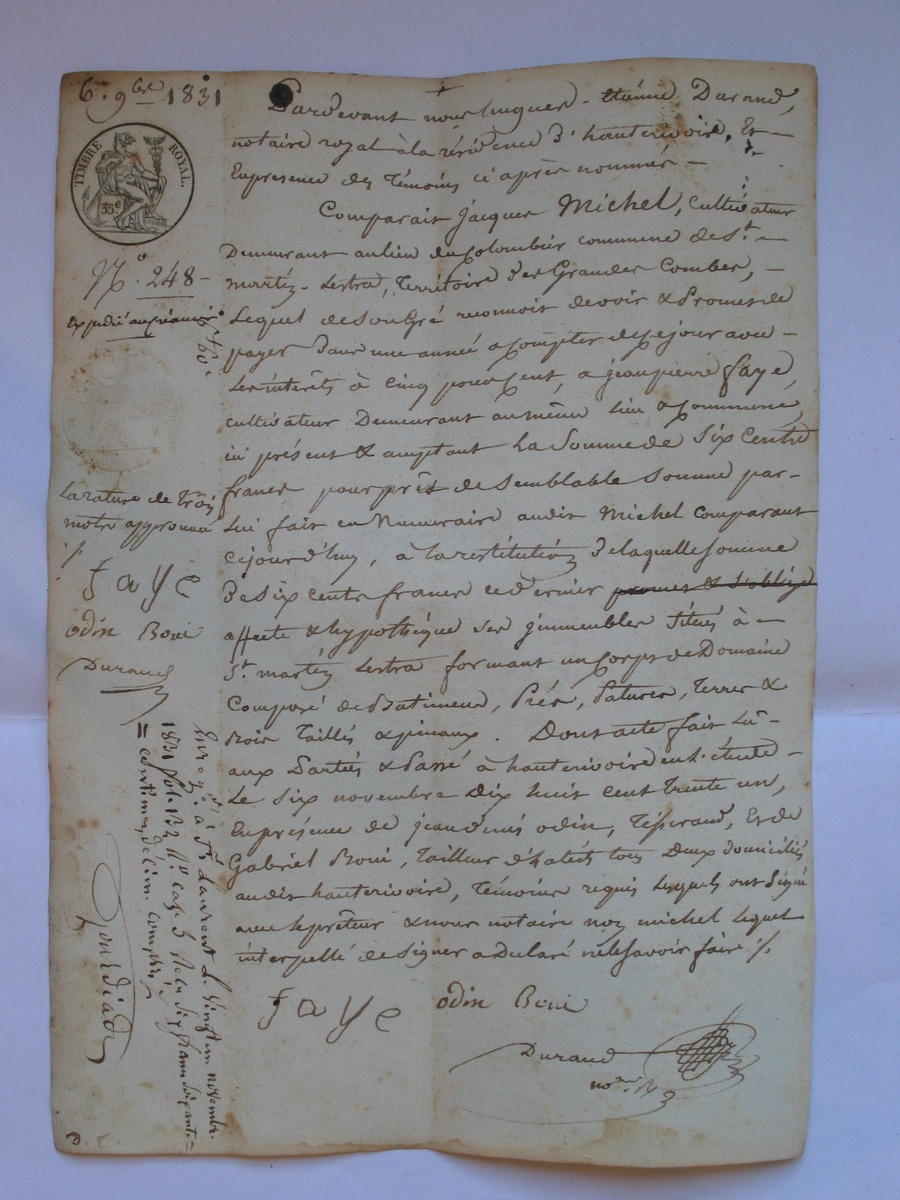 6. 9bre 1831
TIMBRE ROYAL.
35c
No. 248 -
expédié au créancier
La rature de trois
mots approuvée
./.
faye
odin Boui
Durand
Pardevant nous hugues - étienne Durand,
notaire royal à la résidence d'hauterivoire, Et -
En presence des Témoins ci après nommés -
Comparait jacques Michel, cultivateur
Demeurant au lieu du Colombier commune de St. -
martin - Lestra, Territoire des Grandes Combes, -
Lequel de son Gré reconnoit devoir & Promet de
payer Dans une année a Compter de ce jour avec -
Les intérêts à cinq pour cent, a jean pierre faye,
cultivateur Demeurant au même Lieu & Commune,
ici présent & acceptant La Somme de Six Cents
francs pour prêt de semblable somme par -
Lui fait en Numeraire audit Michel comparant
cejourd'huy, a la restitution de laquelle somme
de Six cents francs ce dernier promet & s'oblige
affecte & hypothéque ses jmmeubles situés à -
St. martin Lestra formant un Corps de Domaine
Composé de Batimens, Prés, Patures, Terres &
Bois Taillis & pinaux. Dont acte fait Lû -
aux Parties & Passé à hauterivoire en l'étude -
Le six novembre Dix huit cent trente un,
En présence de jean denis odin, Tisserand, Et de
Gabriel Boui, Tailleur d'habits tous Deux domiciliés
audit hauterivoire, Témoins requis Lesquels ont Signé
avec le prêteur & nous notaire non michel Lequel
interpellé de signer a Déclaré ne le savoir faire ./.
faye odin Boui
Durand
nore
Enregté. à St. Laurent Le vingt un novembre
1831 fol. 132 Vo case 3 Reçu six francs soixante =
= centimes, décime compris
D. C.